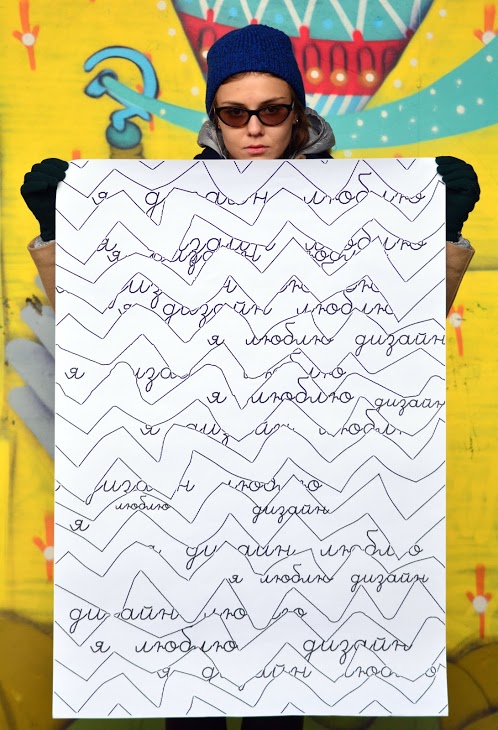 я дизайн люблю
я дизайн люблю
я дизайн люблю
дизайн люблю
я дизайн люблю
я люблю дизайн
я диза люблю
я люблю дизайн
я дизайн люблю
дизайн люблю
я люблю дизайн
я дизайн люблю
я люблю дизайн
дизайн люблю
я люблю дизайн
я дизайн люблю